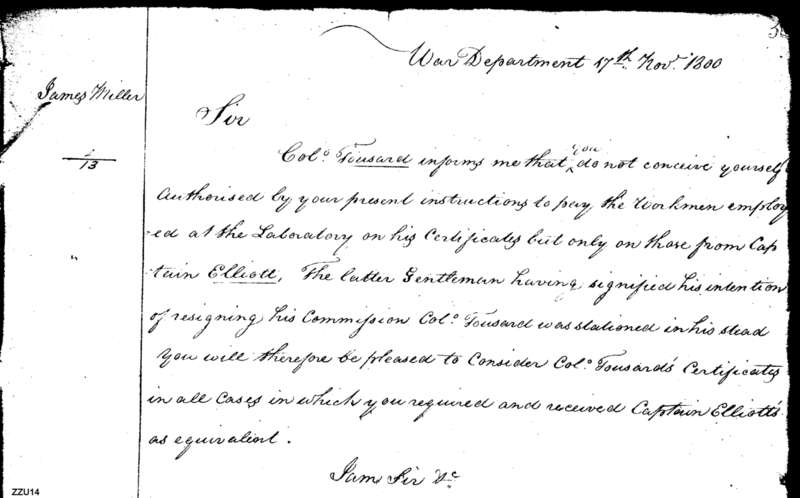 War Department 17th. Nov. 1800
James Miller
1
13
Sir
Colo. Tousard informs me that you do not conceive yourself
Authorised by your present instructions to pay the Workmen employ
-ed at the Laboratory on his Certificates but only on those from Cap
tain Elliott. The latter Gentleman having signified his intention
of resigning his Commission Colo. Tousard was stationed in his stead
You will therefore be pleased to Consider Colo. Tousard's Certificates
in all Cases in which you required and received Captain Elliott's
as equivalent.
I am Sir &c
ZZU14